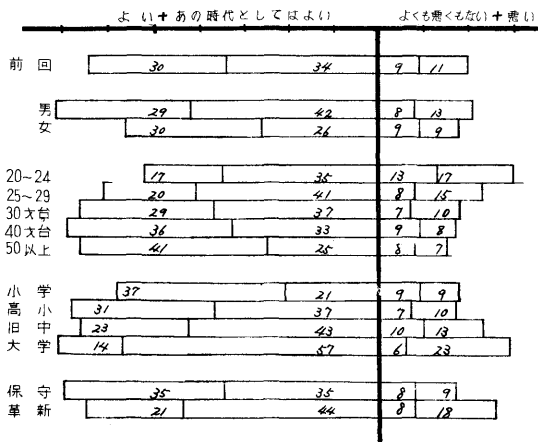 よい+あの時代としてはよい よくも悪くもない+悪い
前回 30 34 9 11
男 29 42 8 13
女 30 26 9 9
20~24 17 35 13 17
25~29 20 41 8 15
30才台 29 37 7 10
40才台 36 33 9 8
50以上 41 25 8 7
小学 37 21 9 9
高小 31 37 7 10
旧中 23 43 10 13
大学 14 57 6 23
保守 35 35 8 9
革新 21 44 8 18